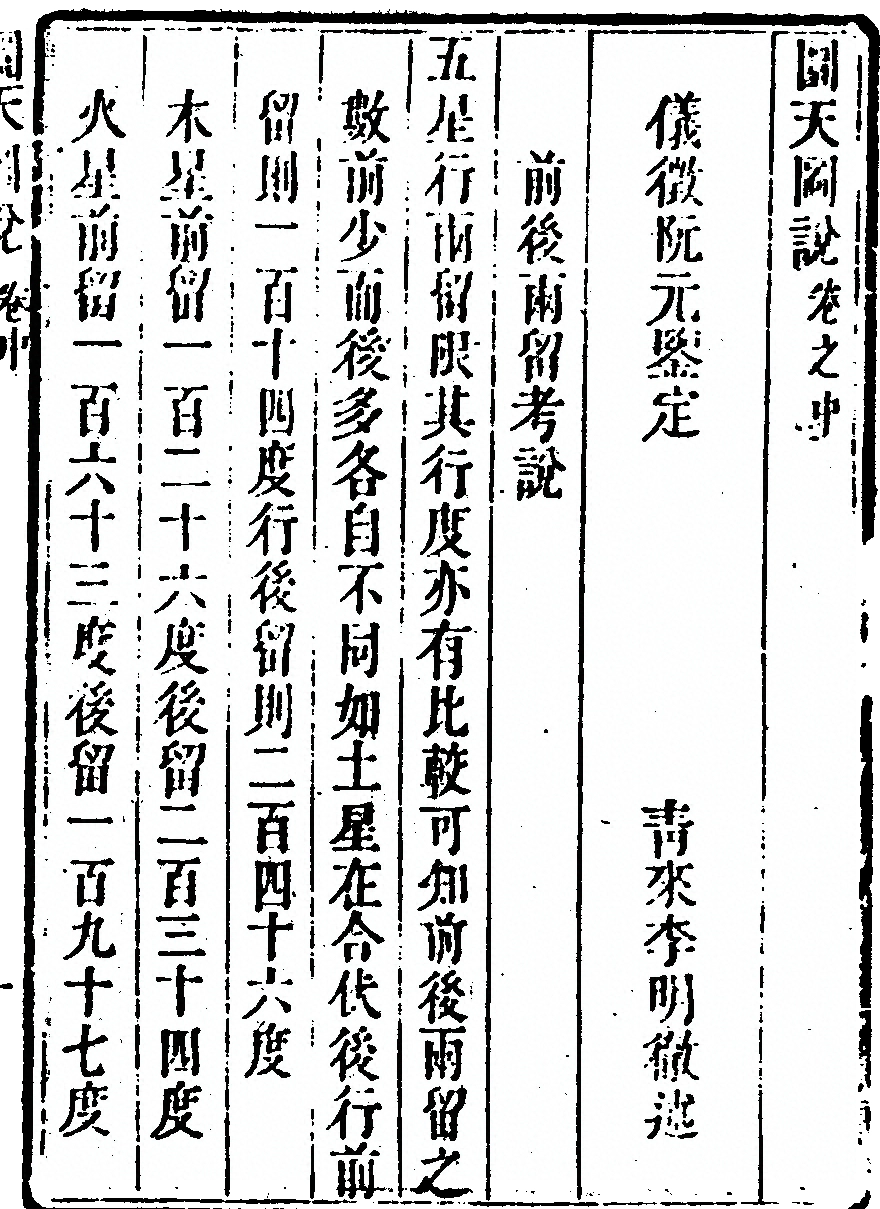 圜天圖說卷之中
儀徵阮元鑒定 靑來李明徹述
前後兩留考說
五星行兩留限其行度亦有比較可知前後兩留之
數前少而後多各自不同如土星在合伏後行前
留則一百十四度行後留則二百四十六度
木星前留一百二十六度後留二百三十四度
火星前留一百六十三度後留一百九十七度
圜天圖說 卷中